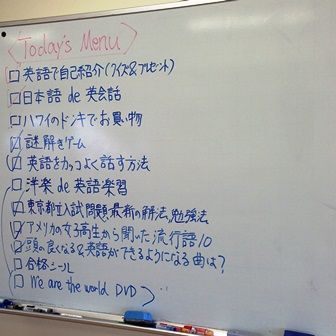 <Today's Menu>
□英語で自己紹介(クイズ&プレゼント)
□日本語 de 英会話
□ハワイのドンキでお買い物
☑謎解きゲーム
☑英語をカッコよく話す方法
□洋楽 de 英語楽習
☑東京都立入試問題最新の解法,勉強法
☑アメリカの女子高生から聞いた流行語10
☑頭の良くなる&英語ができるようになる曲は?
□合格シール
□We are the world DVD